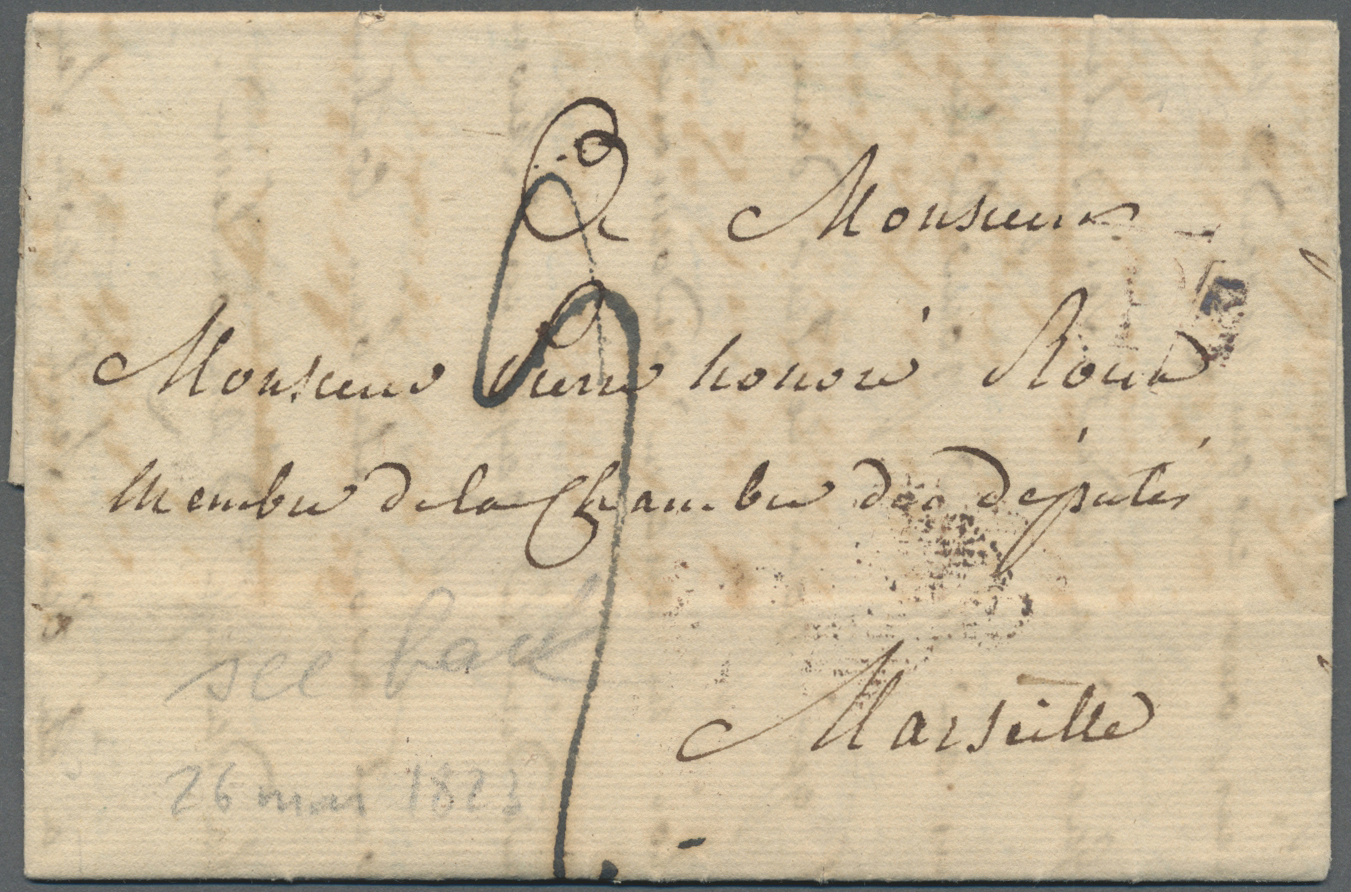 A Monsieur
Monsieur Pierre honoré Roux
Membre de la Chambre des députés
Marseille
see back
26 mai 1823